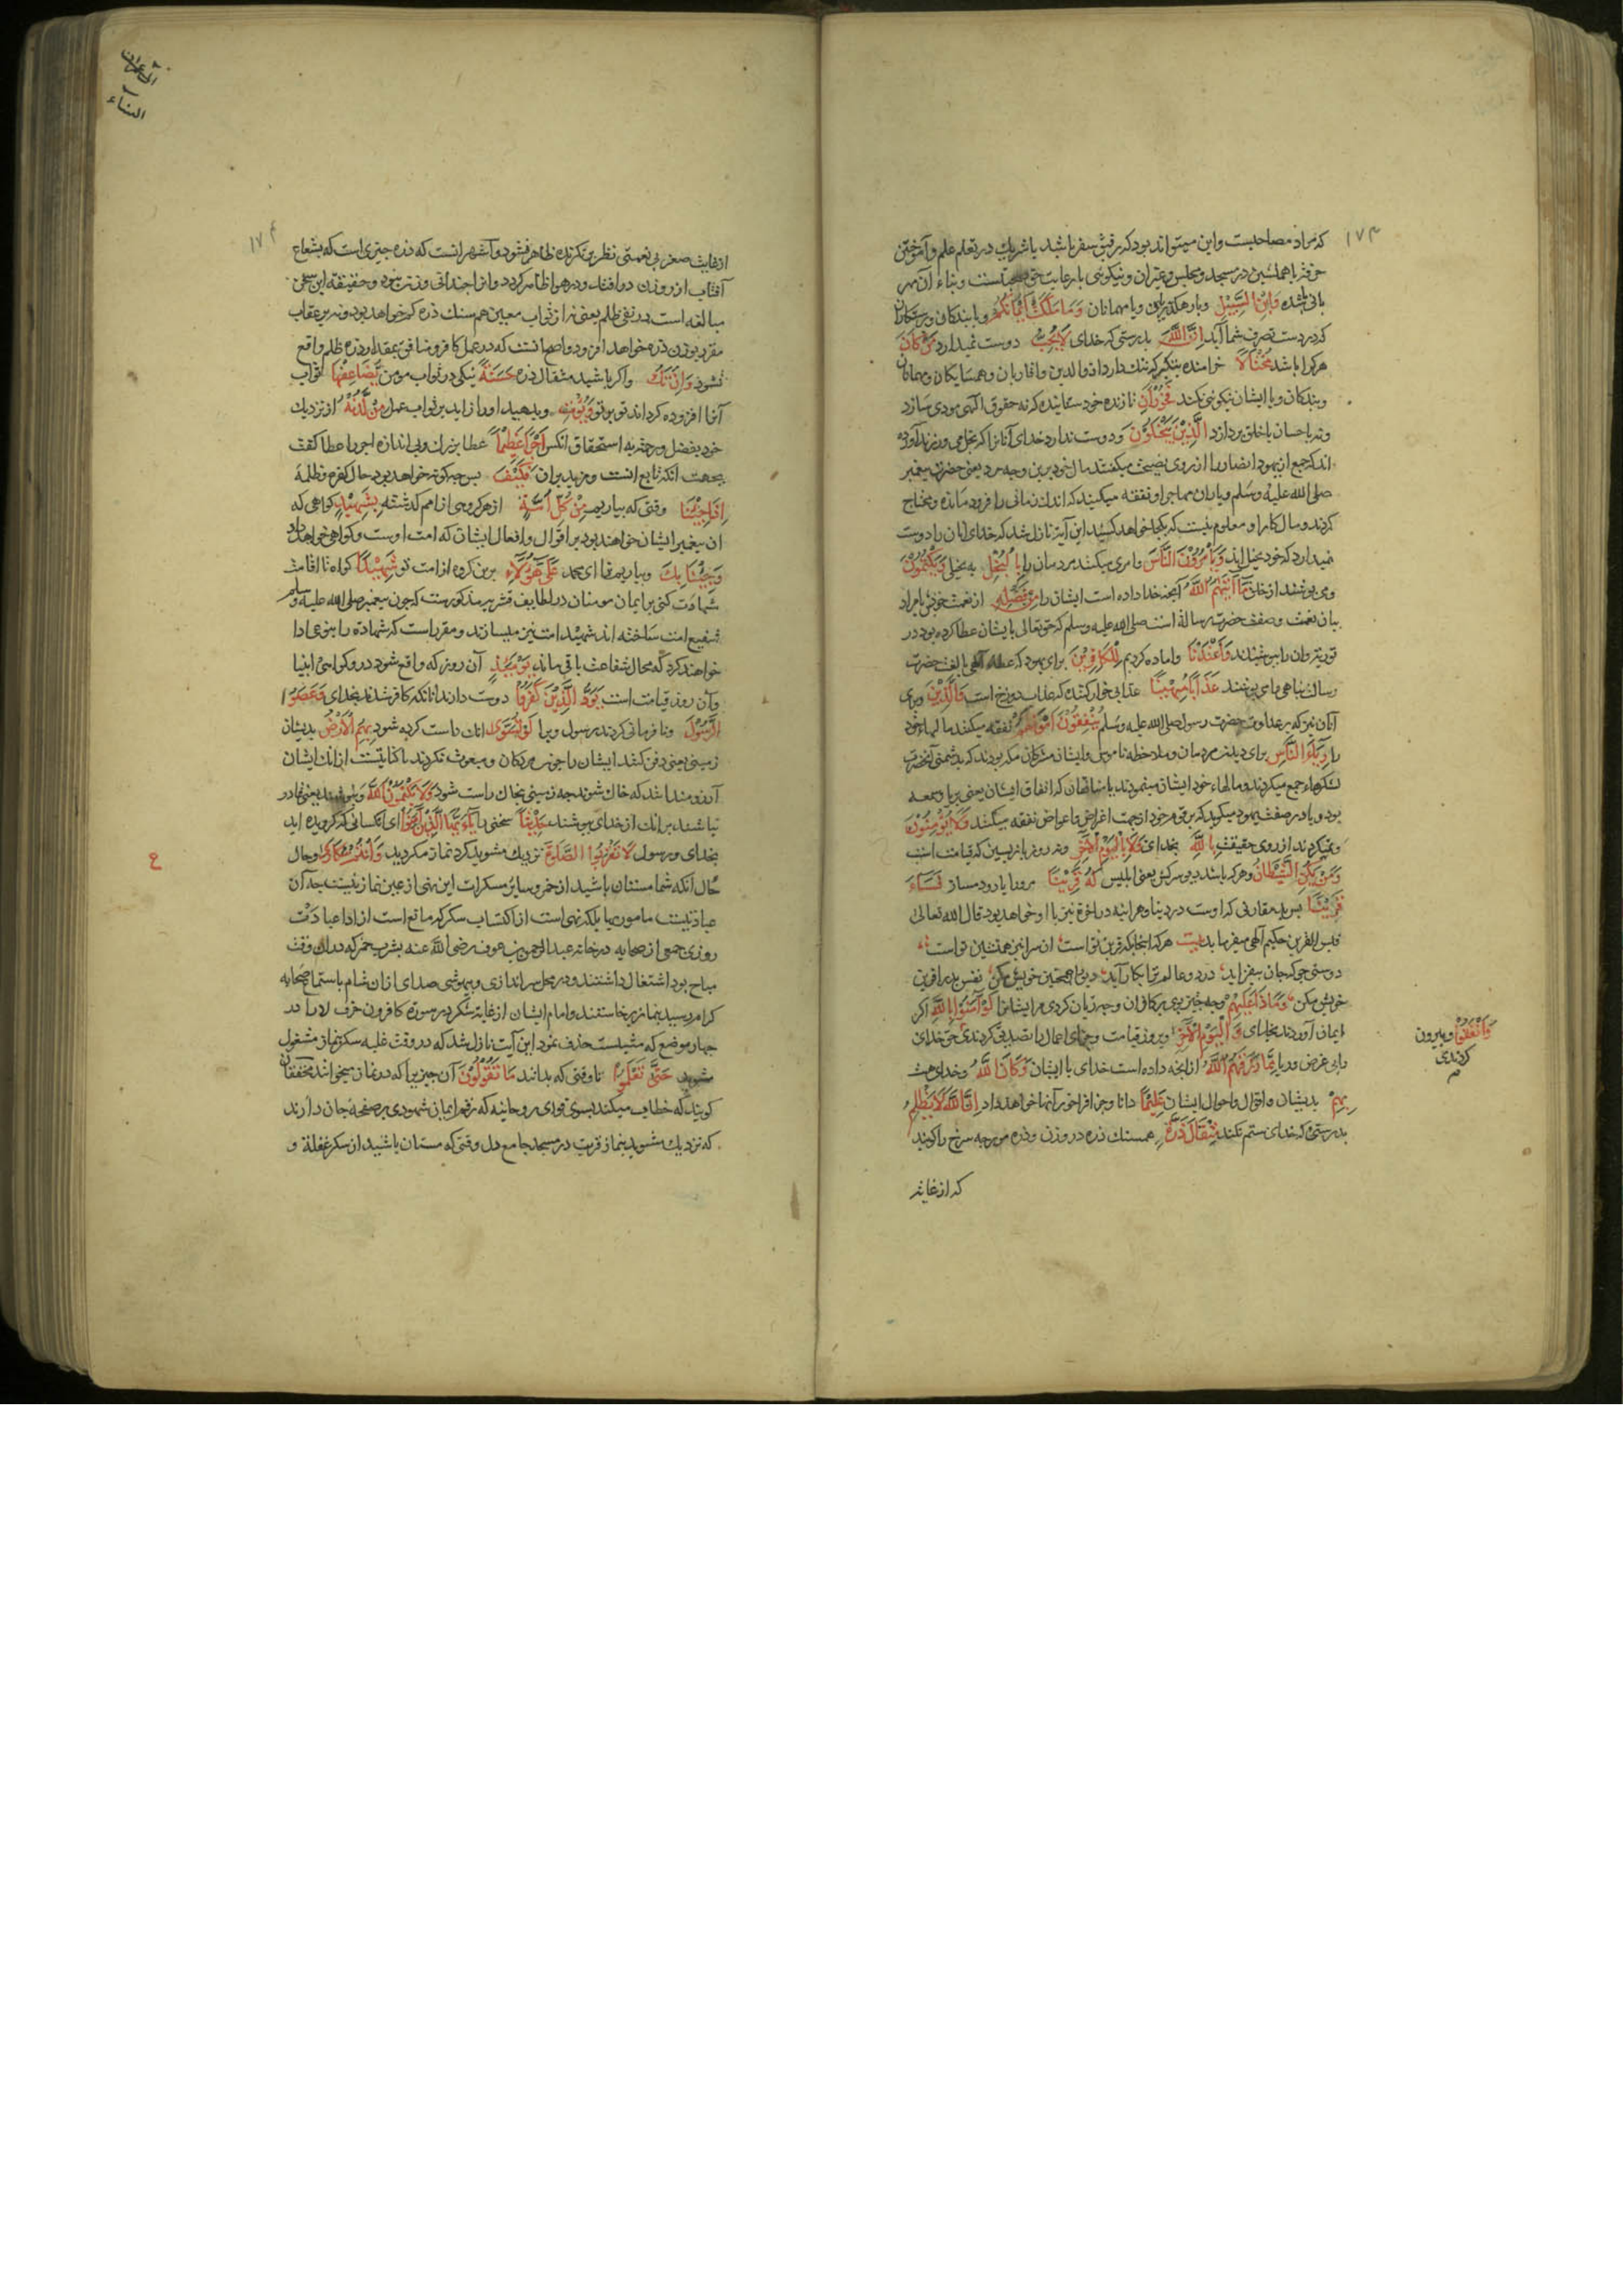 ۱۷۳
که مراد مصاحبست و این میتواند بود که رفیق سفر باشد یا شریك در تعلم علم و آموختن
حرفه یا همنشین در مسجد و مجلس و غیر آن و نیکوئی با رعایت حق صحبتست و بناء آن بر
وَابْنِ السَّبِيلِ و با رهگذریان و یا مهمانان وَمَا مَلَكَتْ أَيْمَانُكُمْ و با بندکان و پرستاران
که در دست تصرف شما آید اِنَّ اللَّهَ بدرستی که خدای لَا يُحِبُّ دوست نمیدارد مَنْ كَانَ
هرکرا باشد مُخْتَالًا خرامنده بتکبر که ننك دارد از والدین و اقاربان و همسایکان و مهمانان
و بندکان و با ایشان نیکوئی نکند فَخُورًا نازنده خود ستاینده که نه حقوق الهی مودی سازد
و نه باحسان با خلق پردازد الَّذِينَ يَبْخَلُونَ و دوست ندارد خدای آنانرا که بخل می ورزند آورده
اند که جمع از یهود انصار را از روی نصیحت میکفتند مال خود برین وجه مرد یعنی حضرت پیغمبر
صلی الله علیه وسلم و یاران مهاجر او نفقه میکنید که اندك زمانی را فرو مانده و محتاج
کردند و مال کار او معلوم نیست که بکجا خواهد کشید این آیت نازل شد که خدای آنان را دوست
نمیدارد که خود بخیل اند وَيَأْمُرُونَ النَّاسَ و امر می میکنند مردمان را بِالْبُخْلِ به بخیلی وَيَكْتُمُونَ
و می پوشند از خلق مَا آتَيهُمُ اللَّهُ آنچه خدا داده است ایشان را مِنْ فَضْلِهِ از نعمت خود
بیان نعمت و صفت حضرت رسالة است صلی الله علیه وسلم که حق تعالی بایشان عطا کرده بود در
توریة و آن را پوشیدند وَأَعْتَدْنَا و اماده کردیم لِلْكَافِرِينَ برای یهود که حضرت
رسالت پناهی می پوشند عَذَابًا مُهِينًا عذابی خوار کننده که عذاب دوزخ است وَالَّذِينَ و برای
آنان نیز که بر عداوت حضرت رسول صلی الله علیه وسلم يُنْفِقُونَ أَمْوَالَهُمْ نفقه میکنند مالهاء خود
را رِئَاءَ النَّاسِ برای دیدن مردمان و ملاحظه ناموس و ایشان مشرکان مکه بودند که بدشمنی آنحضرت
لشکرها جمع میکردند و مالهاء خود ایشاق مینمودند یا منافقان که انفاق ایشان یعنی بریا و سمعه
بود و یا در صفت یهود میکوید که بر قوم خود از جهت اغراض و اعواض نفقه میکنند وَلَا يُؤْمِنُونَ
و نمیکروند از روی حقیقت بِاللَّهِ بخدای وَلَا بِالْيَوْمِ الْآخِرِ و نه بروز بازپسین که قیامت است
وَمَنْ يَكُنِ الشَّيْطَانُ و هرکه باشد دیو سرکش یعنی ابلیس لَهُ قَرِينًا مر او را یار و دمساز فَسَاءَ
قَرِينًا پس بد مقارنی که اوست در دنیا و هر آینه در آخرة نیز با او خواهد بود قال الله تعالی
فبئس القرین حکیم آلهی میفرماید بیت هرکه اینجا که قرین تو است آن سرا نیز همنشین تو است
دوستی جو که جان بیفزاید در دو عالم ترا بکار آید دیو را همنشین خویش مکن نفس بد را قرین
خویش مکن وَمَاذَا عَلَيْهِمْ و چه چیز بود بر کافران و چه زیان کردی مر ایشانرا لَوْ آمَنُوا بِاللَّهِ اکر
ایمان آوردند بخدای وَالْيَوْمِ الْآخِرِ و بروز قیامت و جزای اعمال را تصدیق کردندی حق خدای
وَأَنْفَقُوا و بیرون
کردندی
را بی غرض و ریا مِمَّا رَزَقَهُمُ اللَّهُ از آنچه داده است خدای با ایشان وَكَانَ اللَّهُ و خدای هست
بِهِمْ بدیشان و اقوال و احوال ایشان عَلِيمًا دانا و جزا فراخور آنها خواهد داد اِنَّ اللَّهَ لَا يَظْلِمُ
بدرستی که خدای ستم نکند مِثْقَالَ ذَرَّةٍ همسنك ذره در وزن و ذره مورچه سرخ را کویند
که از غایت
آل عمران
النساء
۱۷۴
از غایت صغر بی نعمتی نظر تیز نکرنده ظاهر نشود و آشهر انست که ذره چیزی است که بشعاع
آفتاب از روزن در افتد و در هوا ظاهر کردد و انرا چندانی وزن نبود و حقیقة این سخن
مبالغه است در نفی ظلم یعنی نه از ثواب معین هم سنك ذره کم خواهد بود و نه بر عقاب
مقرر بوزن ذره خواهد افزود و اصح انست که در عمل کافر و منافق بمقدار ذره ظلم واقع
نشود وَإِنْ تَكُ و اکر باشد مثقال ذره حَسَنَةً نیکی در ثواب مومن يُضَاعِفْهَا ثواب
آنرا افزوده کرداند وَيُؤْتِ و بدهد او را زاید بر ثواب عمل مِنْ لَدُنْهُ از نزدیك
خود بفضل و رحمت نه استحقاق آنکس أَجْرًا عَظِيمًا عطا بزرك و بی اندازه اجر را عطا کفت
بجهت آنکه تابع انست و مزید بر آن فَكَيْفَ پس چکونه خواهد بود حال کفره و ظلمه
إِذَا جِئْنَا وقتی که بیاریم مِنْ كُلِّ أُمَّةٍ از هر کروهی از امم کذشته بِشَهِيدٍ کواهی که
آن پیغمبر ایشان خواهند بود بر اقوال و افعال ایشان که امت اوست و کواهی خواهد داد
وَجِئْنَا بِكَ و بیاریم ترا ای محمد عَلَى هَؤُلَاءِ برین کروه از امت تو شَهِيدًا کواه تا اقامت
شهادت کنی بر ایمان مومنان در لطایف قشیری مذکورست که چون پیغمبر صلی الله علیه وسلم
شفیع امت ساخته اند شهید امت نیز میسازند و مقرر است که شهادة را بنوعی ادا
خواهند کرد که محال شفاعت باقی ماند يَوْمَئِذٍ آن روز که واقع شود در و کواهی انبیا
و آن روز قیامت است يَوَدُّ الَّذِينَ كَفَرُوا دوست دارند انانکه کافر شدند بخدای وَعَصَوُا
الرَّسُولَ و نافرمانی کردند رسول ویرا لَوْ تُسَوَّى انك راست کرده شود بِهِمُ الْأَرْضُ بدیشان
زمین یعنی دفن کنند ایشان را چون مردکان و مبعوث نکردند یا کنایتست از انك ایشان
آرزومند باشد که خاك شوند چه زمینی بخاك راست شود وَلَا يَكْتُمُونَ اللَّهَ و نپوشند یعنی قادر
نباشند بر انك از خدای پوشند حَدِيثًا سخنی را يَا أَيُّهَا الَّذِينَ آمَنُوا ای آنکسانی که کرویده اید
بخدای و رسول لَا تَقْرَبُوا الصَّلَوةَ نزدیك مشوید کرد نماز مکردید وَأَنْتُمْ سُكَارَى و حال
حال آنکه شما مستان باشید از خمر و سایر مسکرات این نهی از عین نماز نیست چه آن
ع
عبادتیست مامور بها بلکه نهی است از اکتساب سکر که مانع است از ادا عبادت
روزی جمعی از صحابه در خانه عبد الرحمن بن عوف رضی الله عنه بشرب خمر که در آن وقت
مباح بود اشتغال داشتند و در محل سر اندازی و بیهوشی صدای اذان شام باستماع صحابه
کرام رسید بنماز برخاستند و امام ایشان از غایة سکر در سورة کافرون حرف لا را در
چهار موضع که مثبتست حذف نمود این آیت نازل شد که در وقت غلبه سکر نماز مشغول
مشوید حَتَّى تَعْلَمُوا تا وقتی که بدانند مَا تَقُولُونَ آن چیزی را که در نماز میخوانند محققان
کویند که خطاب میکند بسوی قوای روحانیه که رقم ایمان شهودی بر صفحه جان دارند
که نزدیك مشوید بنماز قربت در مسجد جامع دل وقتی که مستان باشید از سکر غفلة و